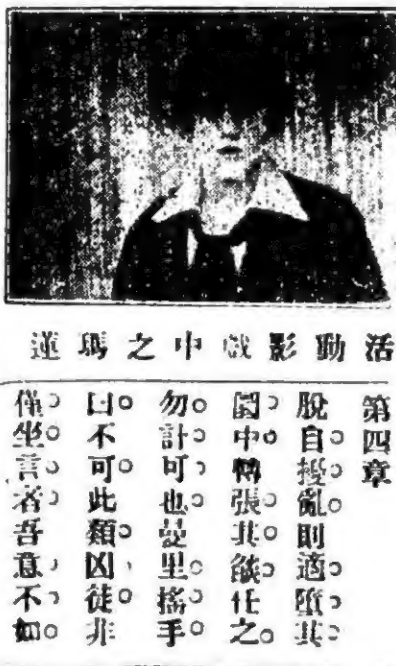 活動影戲中之瑪蓮
第四章
脫自擾亂則適墮其
閫中轉張其燄任之
勿計可也曼里搖手
曰不可此類凶徒非
僅坐言者吾意不如